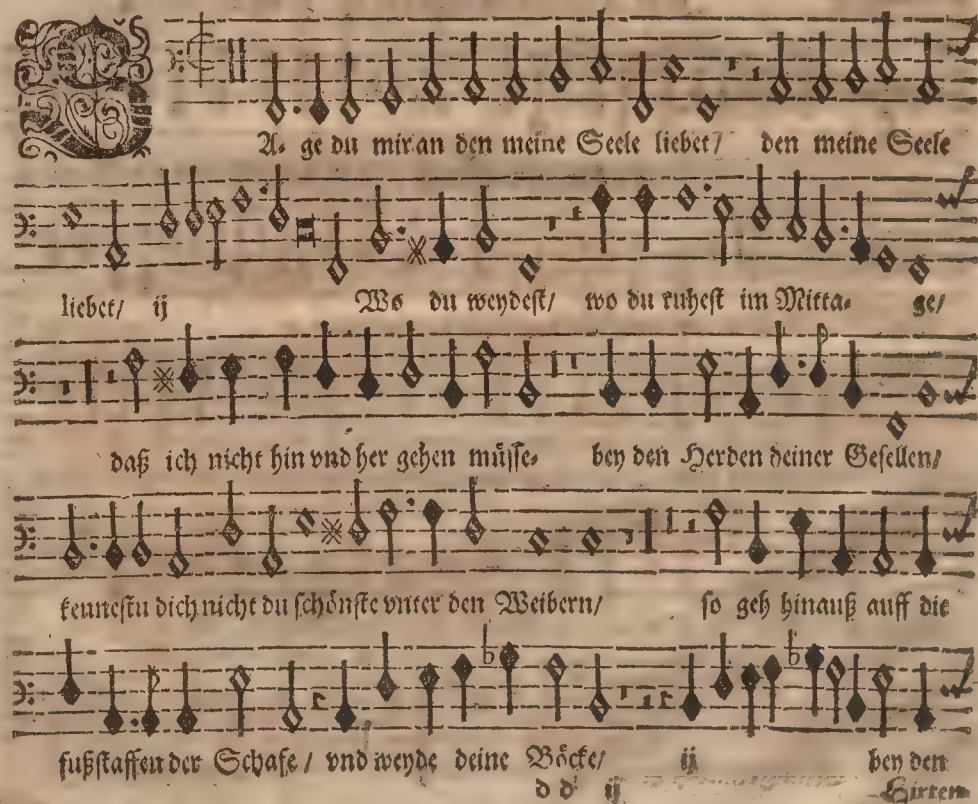 SA- ge du mir an den meine Seele liebet/ den meine Seele
liebet/ ij Wo du weydest/ wo du ruhest im Mitta- ge/
daß ich nicht hin vnd her gehen müsse- bey den Herden deiner Gesellen/
kennestu dich nicht du schönste vnter den Weibern/ so geh hinauß auff die
fußstaffen der Schafe/ vnd weyde deine Böcke/ ij bey den
d d ij Hirten